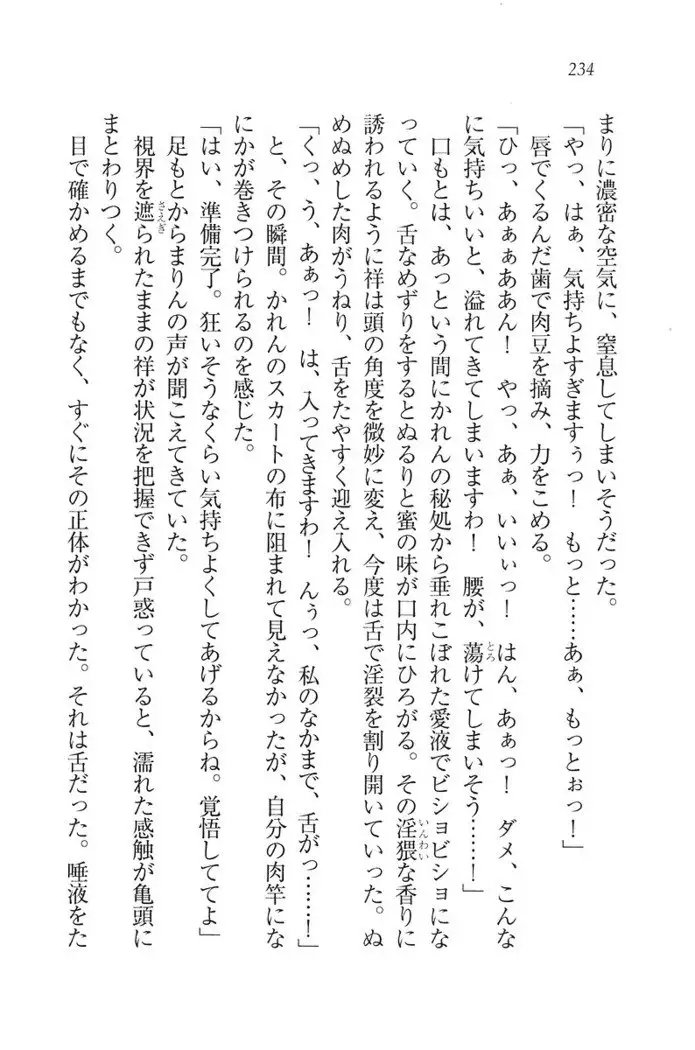 234
まりに濃密な空気に、窒息してしまいそうだった。
「やっ、はぁ、気持ちよすぎますぅっ！　もっと……あぁ、もっとぉっ！」
唇でくるんだ歯で肉豆を摘み、力をこめる。
「ひっ、あぁぁああん！　やっ、あぁ、いいぃっ！　はん、あぁっ！　ダメ、こんな
に気持ちいいと、溢れてきてしまいますわ！　腰が、蕩とろけてしまいそう……！」
口もとは、あっという間にかれんの秘処から垂れこぼれた愛液でビショビショにな
っていく。舌なめずりをするとぬるりと蜜の味が口内にひろがる。その淫猥いんわいな香りに
誘われるように祥は頭の角度を微妙に変え、今度は舌で淫裂を割り開いていった。ぬ
めぬめした肉がうねり、舌をたやすく迎え入れる。
「くっ、う、あぁっ！　は、入ってきますわ！　んぅっ、私のなかまで、舌がっ……！」
と、その瞬間。かれんのスカートの布に阻まれて見えなかったが、自分の肉竿にな
にかが巻きつけられるのを感じた。
「はい、準備完了。狂いそうなくらい気持ちよくしてあげるからね。覚悟しててよ」
足もとからまりんの声が聞こえてきていた。
視界を遮さえぎられたままの祥が状況を把握できず戸惑っていると、濡れた感触が亀頭に
まとわりつく。
目で確かめるまでもなく、すぐにその正体がわかった。それは舌だった。唾液をた